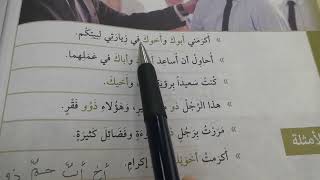 » أَكرَمَني أبوكَ وأخوكَ في زِيارَتي لبَيتِكُم.
» أُحاوِلُ أن أُساعِدَ وأباكَ في عَمَلِهِما.
» كُنتُ سَعيداً برؤيَةِ وأخيكَ.
» هذا الرَّجُلُ ذو خَيرٍ، وهَؤُلاءِ ذَوُو فَقْرٍ.
» مَرَرْتُ بِرَجُلٍ وفَضائِلَ كَثيرَةٍ.
الأمثلة
» أكرَمتُ إكرامٍ.
أخ أبٌ حمٌ ذو